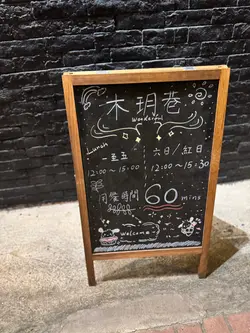 木玥巷
Wonderful
Lunch
一至五
12:00～15:00
六日/紅日
12:00～15:30
用餐時間
60 mins
Welcome